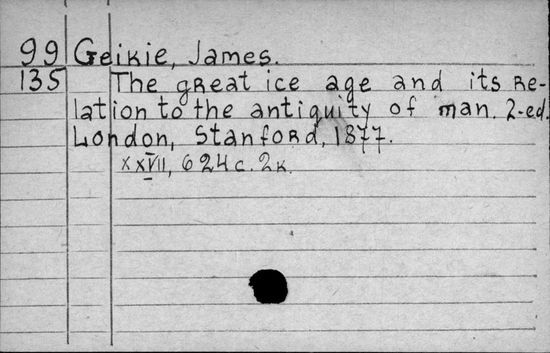 99 Geikie, James.
135 The great ice age and its re-
lation to the antiquity of man. 2-ed.
London, Stanford, 1877.
XXVII, 624 c. 2 к.